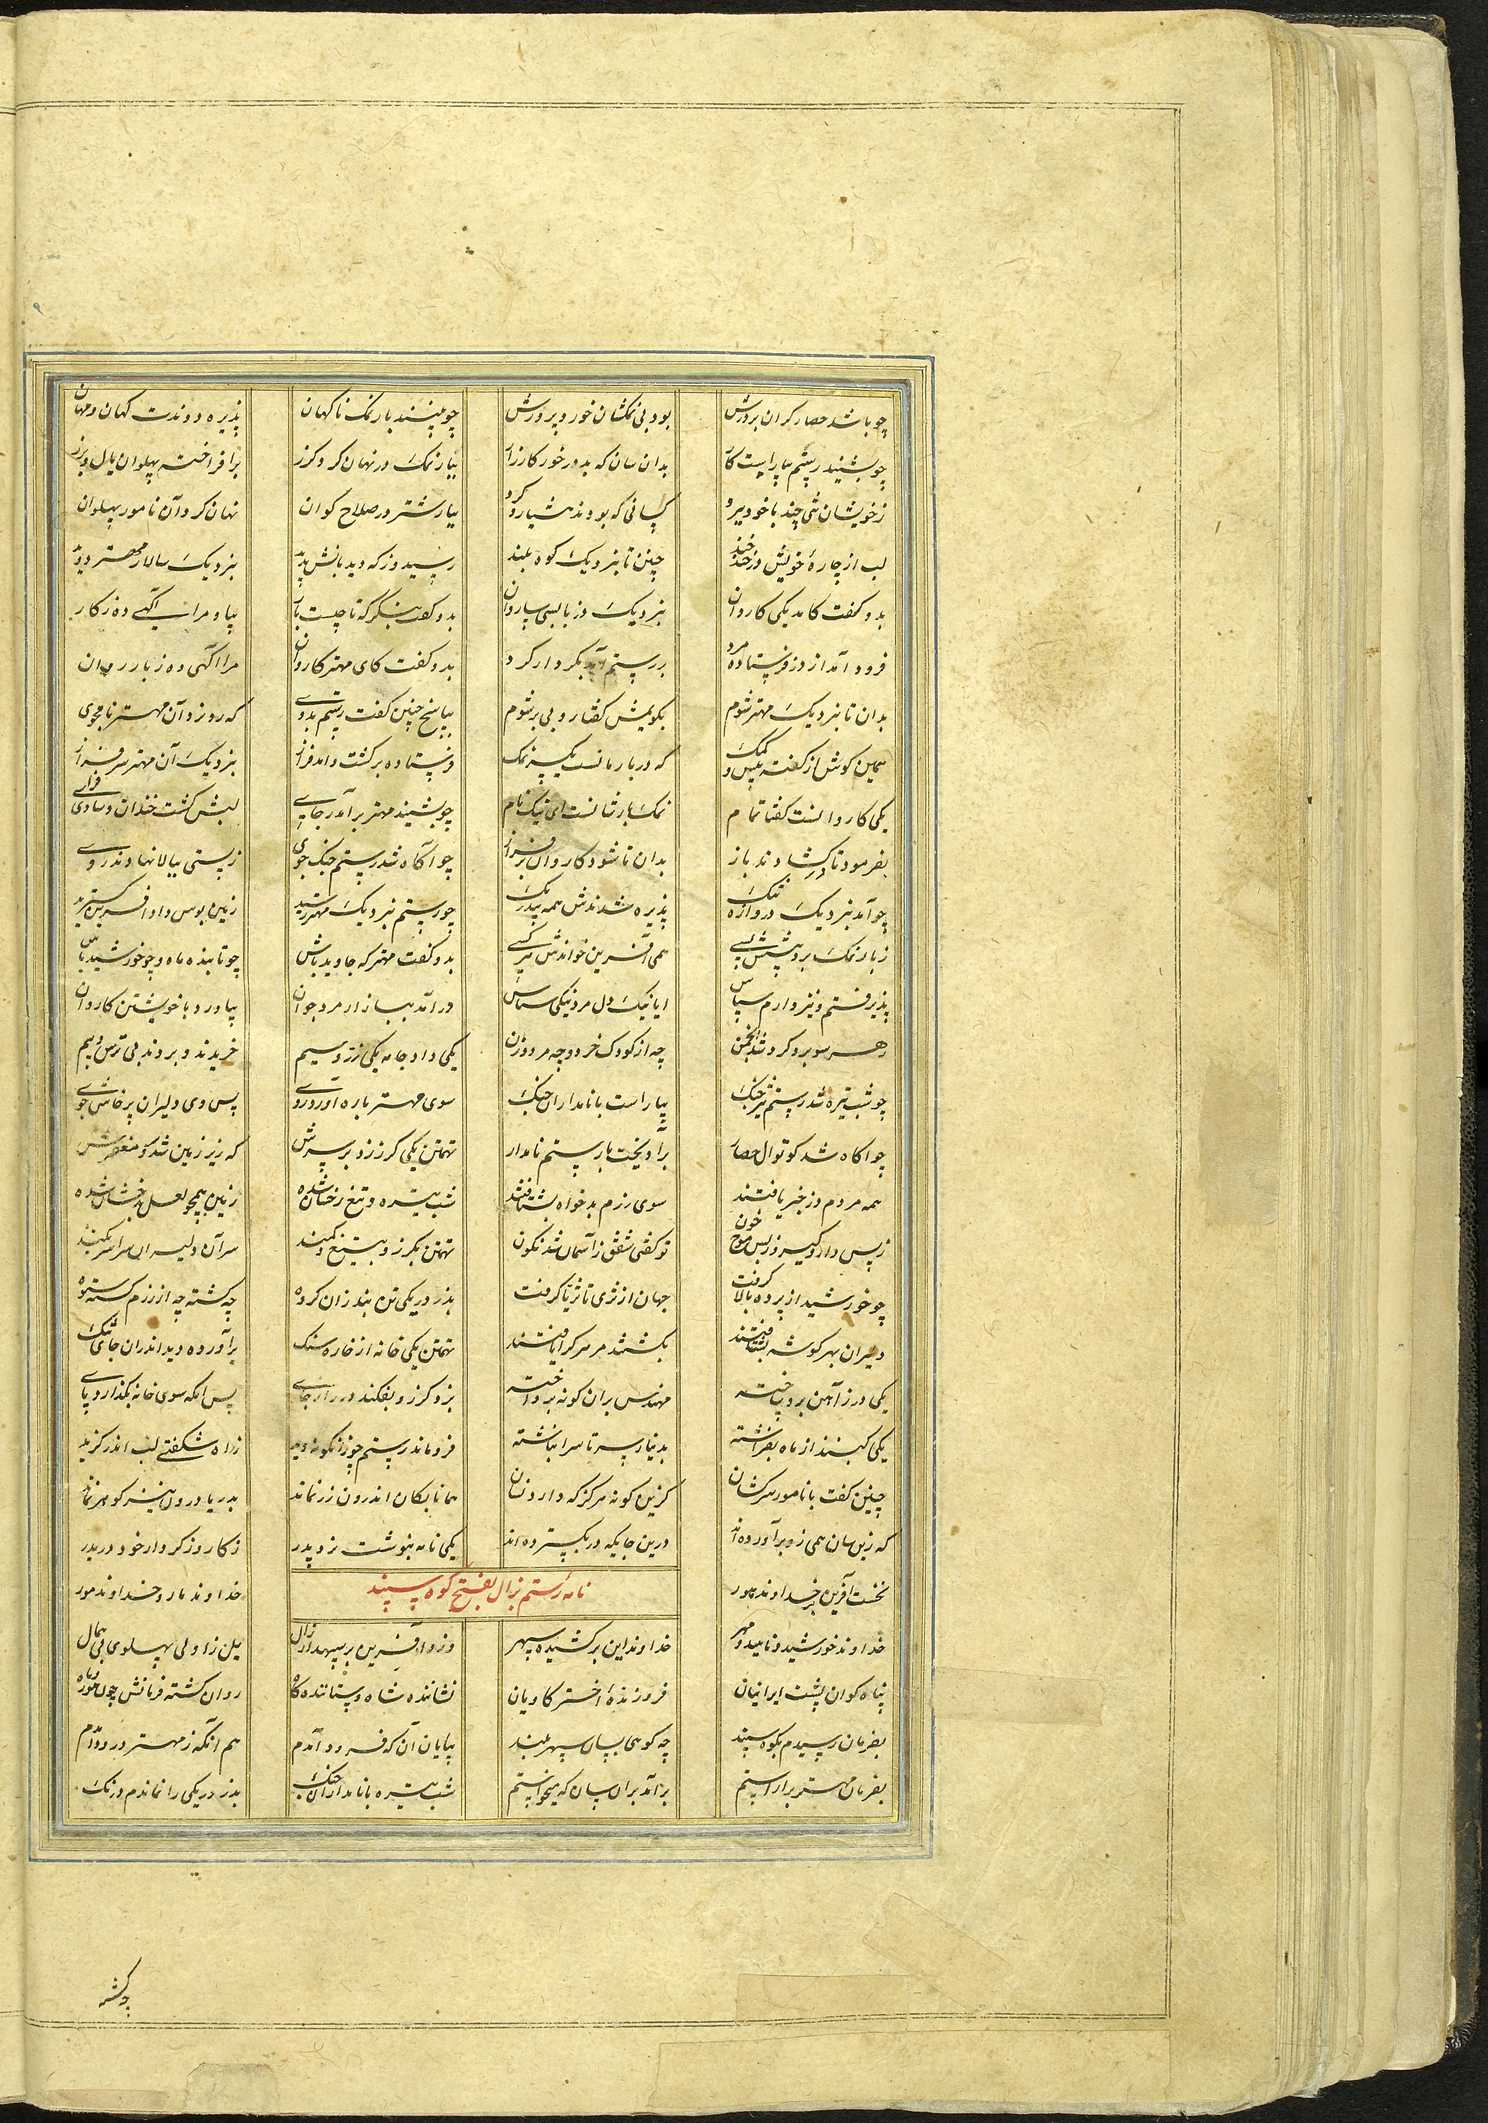 چو باشد حصار گران بر درش بود بی نمکشان خور و پرورش چو بینند بار نمک ناگهان پذیره دوندت کهان و مهان
چو بشنید رستم بیاراست کار بدان سان که بد درخور کارزار ببار نمک در نهان کرد گرز برافراخته پهلوان یال و برز
ز خویشان تنی چند با خود ببرد کسانی که بودند هشیار و گرد ببار شتر در صلاح گوان نهان کرد آن نامور پهلوان
لب از چاره خویش در خندخند چنین تا بنزدیک کوه بلند رسید و ز که دیدبانش بدید بنزدیک سالار مهتر دوید
بدو گفت کامد یکی کاروان بنزدیک دز با بسی ساروان بدو گفت بنگر که تا چیست بار بیا و مرا آگهی ده ز کار
فرود آمد از دز فرستاده مرد بر رستم آمد بکردار گرد بدو گفت کای مهتر کاروان مرا آگهی ده ز بار روان
بدان تا بنزدیک مهتر شوم بگویمش گفتار و بی بر شوم بپاسخ چنین گفت رستم بدوی که رو نزد آن مهتر نامجوی
بگویش که در بار ما نیست یکسر نمک فرستاده برگشت و آمد فراز بنزدیک آن مهتر سرفراز
یکی کاروانست گفتا تمام نمک بارشانست ای نیک نام چو بشنید مهتر برآمد ز جای لبش گشت خندان و شادی فزای
بفرمود تا در گشادند باز بدان تا شود کاروان بر فراز چو آگاه شد رستم جنگ جوی ز پستی ببالا نهادند روی
چو آمد بنزدیک دروازه تنگ پذیره شدندش همه بیدرنگ چو رستم بنزدیک مهتر رسید زمین بوس داد آفرین گسترید
ز بار نمک برد پیشش بسی همی آفرین خواندش هر کسی بدو گفت مهتر که جاوید باش چو تابنده ماه و چو خورشید باش
پذیرفتم و نیز دارم سپاس ایا نیک دل مرد نیکی شناس درآمد ببازار مرد جوان بیاورد با خویشتن کاروان
ز هر سو برو گرد شد انجمن چه از کودک خرد و چه مرد و زن یکی داد جامه یکی زر و سیم خریدند و بردند بی ترس و بیم
چو شب تیره شد رستم تیز چنگ بیاراست با نامداران جنگ سوی مهتر باره آورد روی پس وی دلیران پرخاش جوی
چو آگاه شد کوتوال حصار برآویخت با رستم نامدار تهمتن یکی گرز زد بر سرش که زیر زمین شد مغفرش
همه مردم دز خبر یافتند سوی رزم بدخواه بشتافتند شب تیره و تیغ رخشان شده زمین همچو لعل بدخشان شده
ز بس دار و گیر و ز بس موج خون تو گفتی شفق ز آسمان شد نگون تهمتن بگرز و بتیغ و کمند سر آن دلیران سراسر بکند
چو خورشید از پرده بالا گرفت جهان از ثری تا ثریا گرفت بدز در یکی تن نبد زان گروه چه کشته چه از رزم گشته ستوه
دلیران بهر گوشه بشتافتند بکشتند مر هر کرا یافتند تهمتن یکی خانه از خاره سنگ برآورده دید اندران جای تنگ
یکی در ز آهن برو ساخته مهندس بران گونه پرداخته بزد گرز و بفکند در را ز جای پس آنگه سوی خانه بگذارد پای
یکی گنبد از ماه بفراشته بدینار سر تا سر انباشته فرو ماند رستم چو زانگونه دید ز راه شگفتی لب اندر گزید
چنین گفت با نامور سرکشان کزین گونه هرگز که دارد نشان همانا بکان اندرون زر نماند بدریا درون نیز گوهر نماند
که زین سان همی زر برآورده اند درین جایگه در بگسترده اند یکی نامه بنوشت نزد پدر ز کار و ز کردار خود دربدر
نامه رستم بزال بفتح کوه سپند
نخست آفرین بر خداوند هور خداوند مار و خداوند مور
خداوند خورشید و ناهید و مهر خداوند این برکشیده سپهر وزو آفرین بر سپهدار زال یل زاولی پهلوی بی همال
پناه گوان پشت ایرانیان فروزنده اختر کاویان نشاننده شاه و ستاننده گاه روان گشته فرمانش چون هور و ماه
بفرمان رسیدم بکوه سپند چه کوهی بسان سپهر بلند بپایان آن که فرود آمدم هم آنگه ز مهتر درود آمدم
بفرمان مهتر برآراستم برآمد بران سان که میخواستم شب تیره با نامداران جنگ بدز در یکی را نماندم درنگ
چه کشته